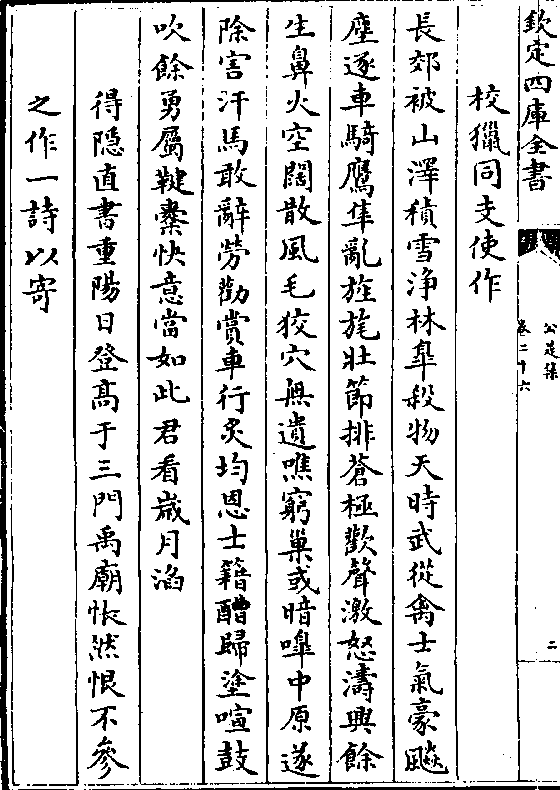 欽定四庫全書
公是集
卷二十六
二
校獵同支使作
長郊被山澤積雪淨林臯殺物天時武從禽士氣豪飈
塵逐車騎鷹隼亂旌旄壯節排蒼極歡聲激怒濤興餘
生鼻火空闊散風毛狡穴無遺噍窮巢或暗嘷中原遂
除害汗馬敢辭勞勸賞車行炙均恩士籍醩歸塗喧鼓
吹餘勇屬鞬櫜快意當如此君看嵗月滔
得隱直書重陽日登髙于三門禹廟悵然恨不參
之作一詩以寄